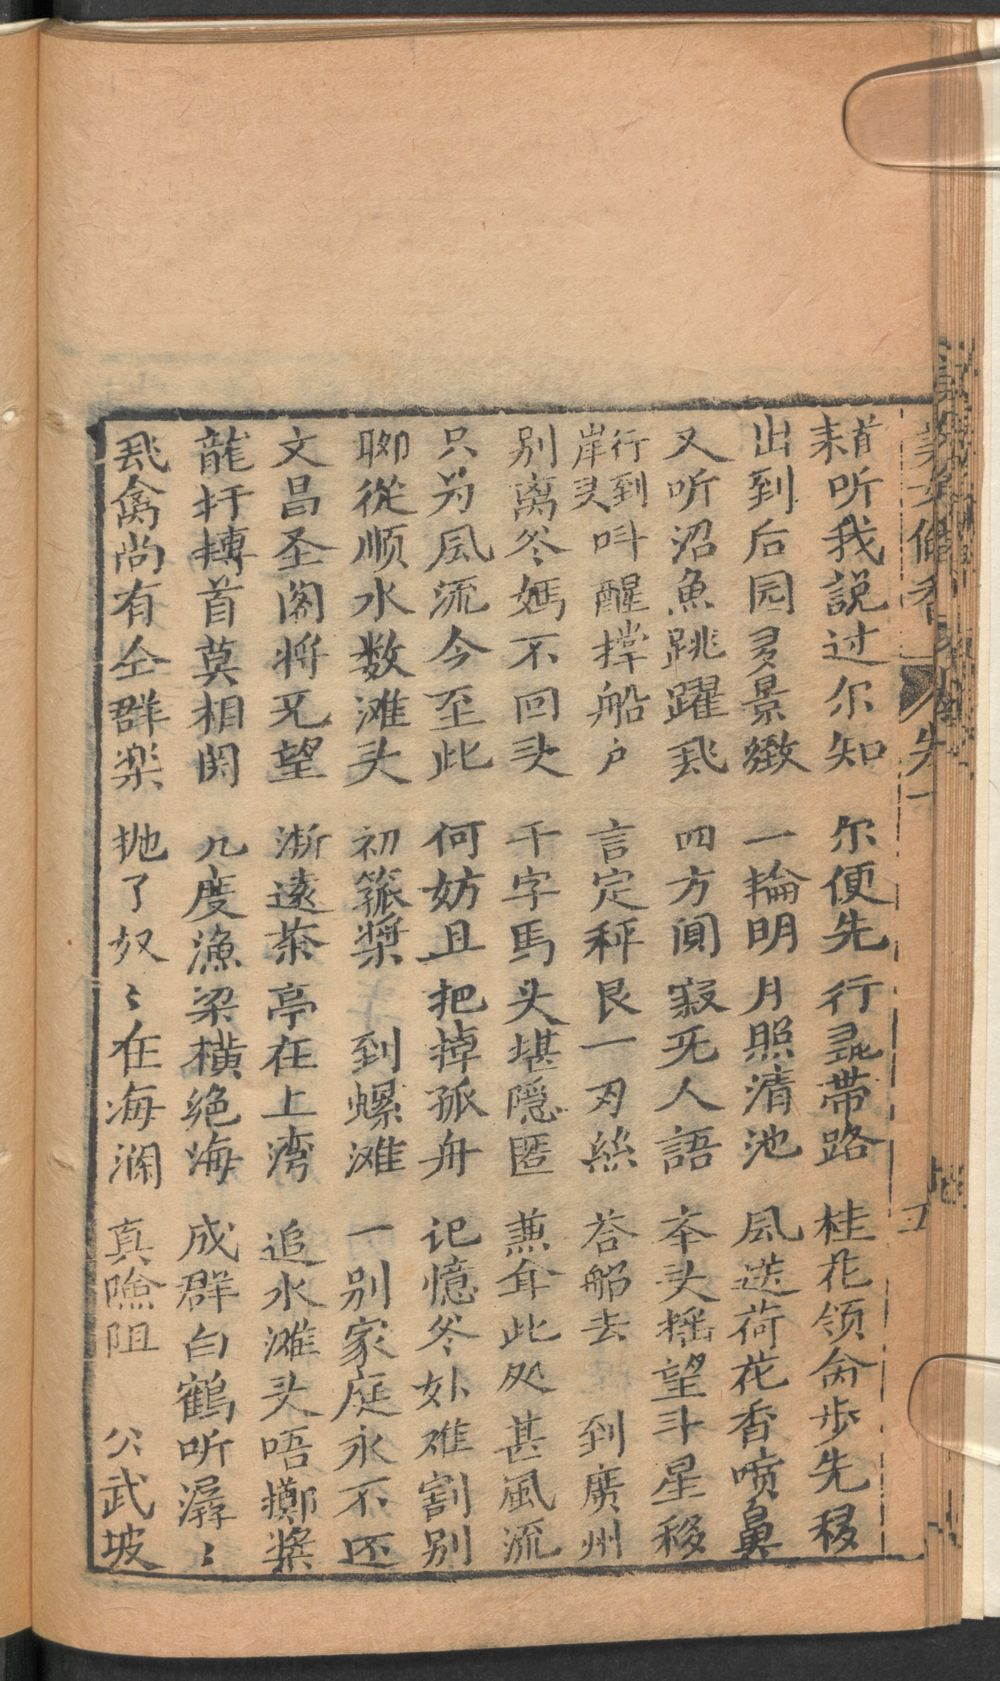 耒首听我説过尔知 尔便先行引带路 桂花领命步先移
出到后园多景緻 一掄明月照清池 凨送荷花香喷鼻
又听沼魚跳躍 四方闃寂旡人語 夲头摇望斗星移
行到岸头呌醒撑船户 言定秤艮一刄絲 荅船去 到廣州
别离爷媽不回头 千字馬头堪隠匿 蕭耸此处甚風流
只为凨流今至此 何妨且把掉孤舟 记憶爷妳难割别
聊從顺水数滩头 初簱槳 到螺滩 一别家庭永不还
文昌圣阁将旡望 渐遠茶亭在上湾 追水滩头唔擲槳
龍圩摶首莫相関 几度漁梁横绝海 成群白鶴听潺〻
禽尚有仝群楽 抛了奴〻在海澜 真險阻 公武坡